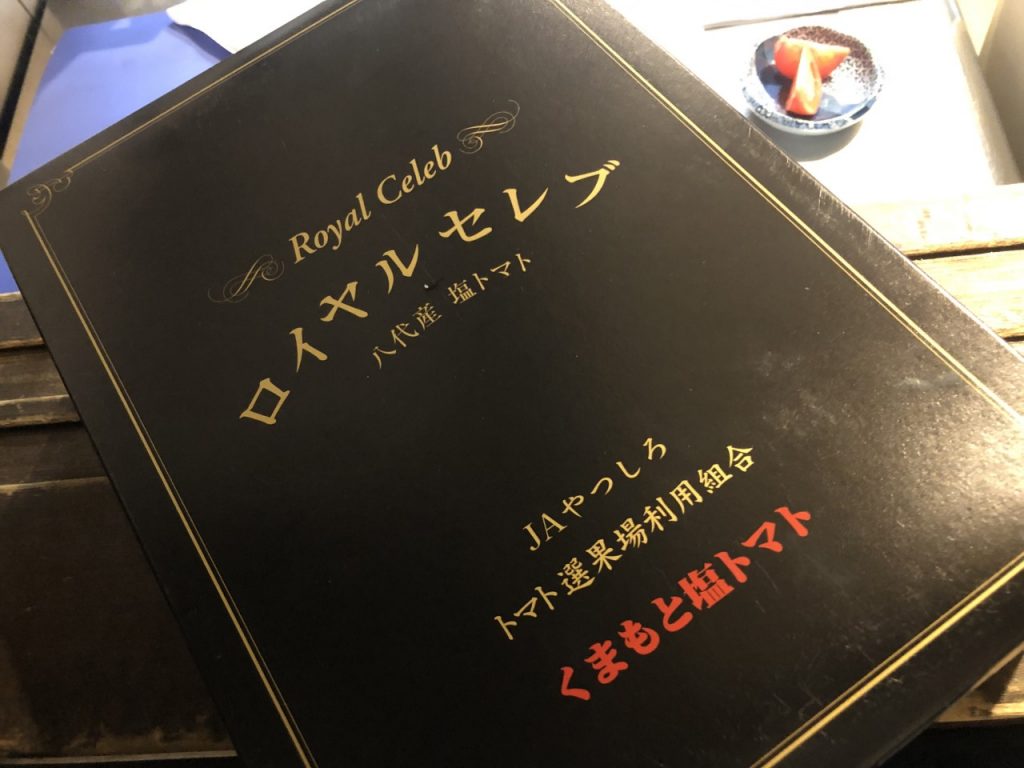 Royal Celeb
ロイヤルセレブ
八代産 塩トマト
JAやつしろ
トマト選果場利用組合
くまもと塩トマト